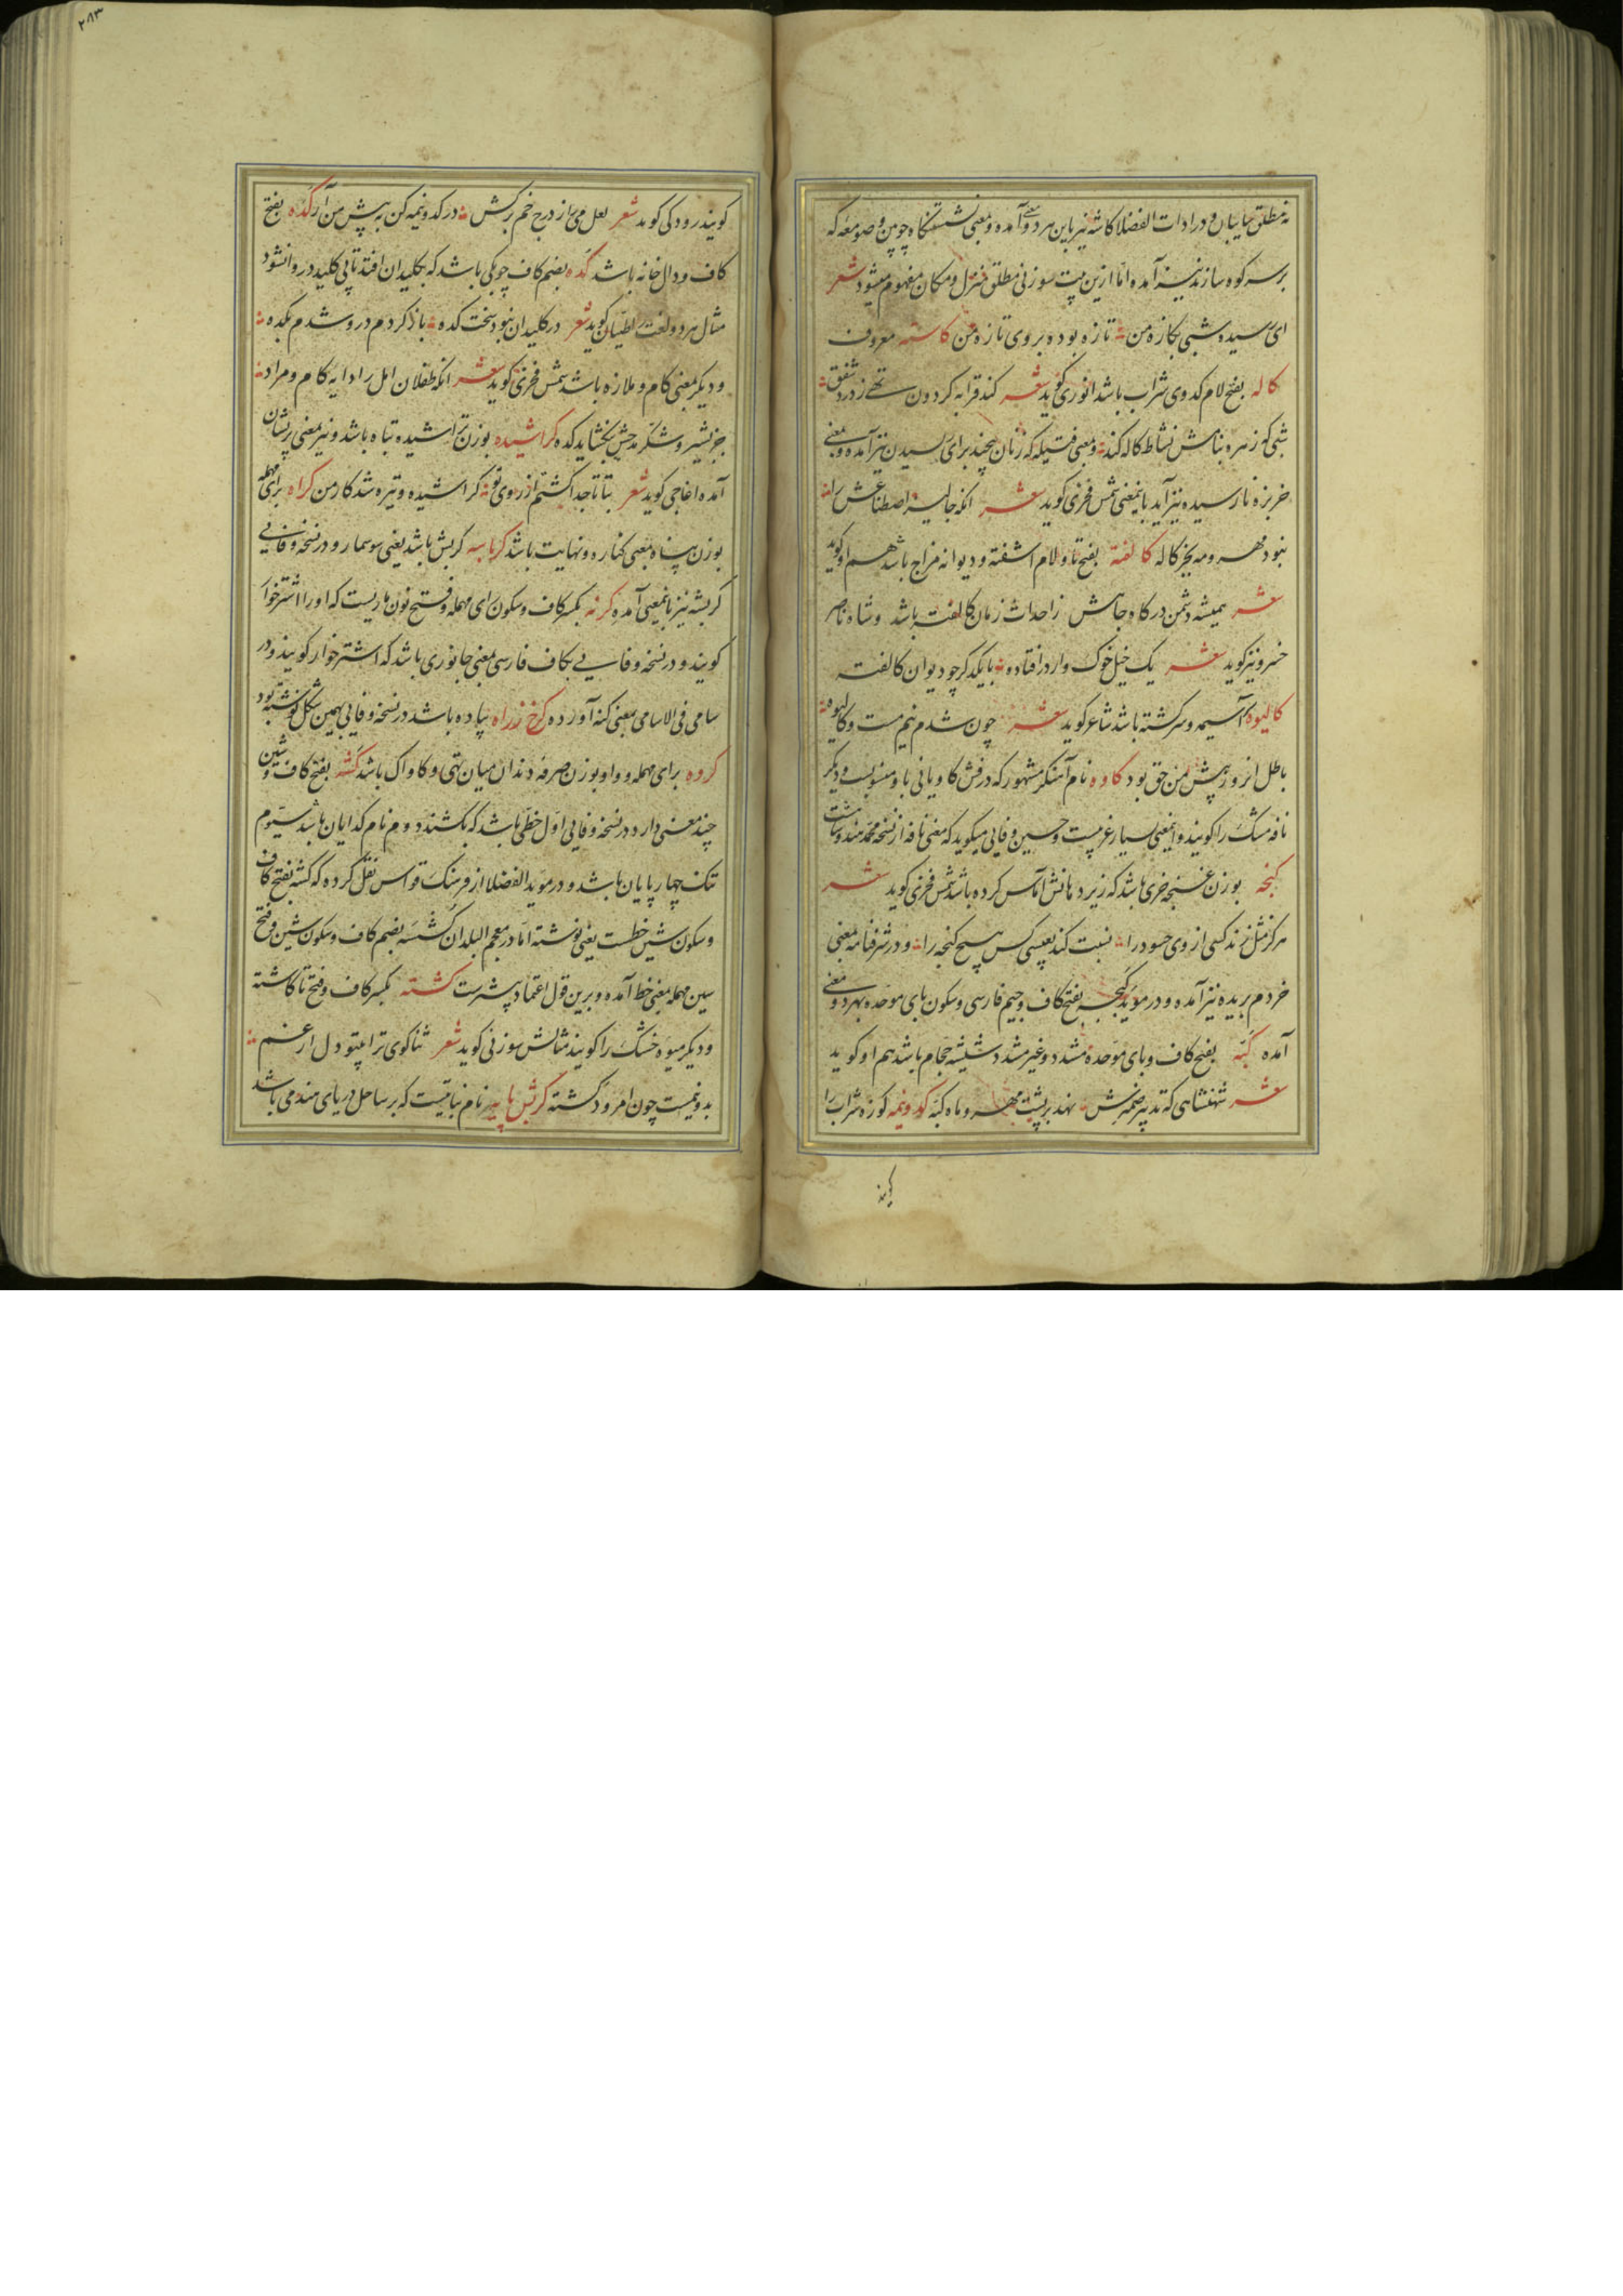 نه مطلق سایبان و در ادات الفضلا کاشه نیز باین هر دو معنی آمده و بمعنی نشستنگاه چوبین و صومعه که
بر سر کوه سازند نیز آمده اما ازین بیت سوزنی مطلق منزل و مکان مفهوم میشود شعر
ای رسیده شبی بکازه من تازه بوده بروی تازه من کاسته معروف
کاله بفتح لام کدوی شراب باشد انوری گوید شعر کند قرابه گردون تهی ز درد شفق
شبی که زهره بنامش نشاط کاله کند و بمعنی فتیله که زنان پیچند برای ریسیدن نیز آمده و بمعنی
خربزه نارسیده نیز آید باینمعنی شمس فخری گوید شعر انکه جالیز اصطناعش را
نبود مهر و مه بجز کاله کالفته بفتح تا و لام اشفته و دیوانه مزاج باشد هم او گوید
شعر همیشه دشمن درگاه جاهش ز احداث زمان کالفته باشد و شاه ناصر
خسرو نیز گوید شعر یک خیل خوک وار درافتاده با یکدگر چو دیوان کالفته
کالیوه آسیمه و سرگشته باشد شاعر گوید شعر چون شدم نیم مست و کالیوه
باطل انروز پیش من حق بود کاوه نام آهنگر مشهور که درفش کاویانی باو منسوبست و دیگر
نافه مشک را گویند و اینمعنی بسیار غریبست و حسین وفایی میگوید که معنی نافه از نسخه محمد هندوشاهست
کبجه بوزن غنچه خری باشد که زیر دهانش اماس کرده باشد شمس فخری گوید شعر
هرگز مثل زند کسی از وی حسود را نسبت کند بعیسی کس هیچ کبجه را و در شرفنامه بمعنی
خر دم بریده نیز آمده و در موید کبجه بفتح کاف و جیم فارسی و سکون بای موحده بهر دو معنی
آمده کبه بفتح کاف و بای موحده مشدد و غیر مشدد شیشه حجام باشد هم او گوید
شعر شهنشاهی که تدبیر ضمیرش نهد بر پشت مهر و ماه کبه کدونیمه کوزه شراب را
گویند
۲۸۳
گویند رودکی گوید شعر لعل می را ز درج خم برکش در کدونیمه کن به پیش من آر کده بفتح
کاف و دال خانه باشد کده بضم کاف چوبکی باشد که بکلیدان افتد تا بی کلید در وا نشود
مثال هر دو لغت را طیان گوید شعر در کلیدان نبود سخت کده باز کردم در و شدم بکده
و دیگر بمعنی کام و ملازه باشد شمس فخری گوید شعر انکه طفلان امل را دایه کام و مراد
جز بشیر و شکر مدحش نگشاید کده کراشیده بوزن تراشیده تباه باشد و نیز بمعنی پریشان
آمده اغاجی گوید شعر بتا تا جدا گشتم از روی تو کراشیده و تیره شد کار من کراه برای مهمله
بوزن پناه بمعنی کناره و نهایت باشد کرباسه کربش باشد یعنی سوسمار و در نسخه وفایی
کربشه نیز باینمعنی آمده کرنه بکسر کاف و سکون رای مهمله و فتح نون ماریست که او را اشترخوار
گویند و در نسخه وفایی بکاف فارسی بمعنی جانوری باشد که اشترخوار گویند و در
سامی فی الاسامی بمعنی کنه آورده کرخ زراه پیاده باشد در نسخه وفایی بهمین شکل نوشته بود
کروه برای مهمله و واو بوزن صرفه دندان میان تهی و کاواک باشد کشه بفتح کاف و شین
چند معنی دارد در نسخه وفایی اول خطی باشد که بکشند دوم نام کدایان باشد سیوم
تنک چهارپایان باشد و در موید الفضلا از فرهنگ قواس نقل کرده که کشه بفتح کاف
و سکون شین خطست یعنی نوشته اما در معجم البلدان کشسه بضم کاف و سکون شین و فتح
سین مهمله بمعنی خط آمده و برین قول اعتماد بیشترست کشته بکسر کاف و فتح تا کاشته
و دیگر میوه خشک را گویند مثالش سوزنی گوید شعر ثناگوی ترا بیتو دل از غم
بدونیمست چون امرود کشته کرشن پایه نام نباتیست که بر ساحل دریای هند می باشد